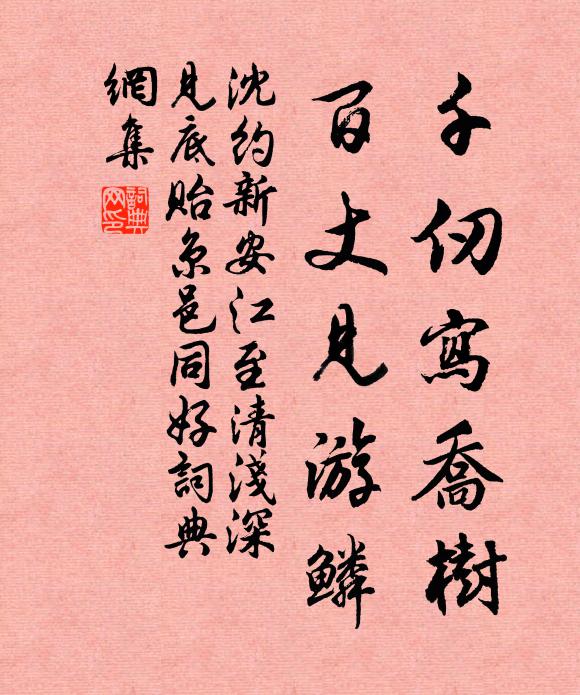 千仞寫喬樹
百丈見游鱗
沈約新安江至清淺深
見底貽京邑同好詞典
網集
詞典
网印